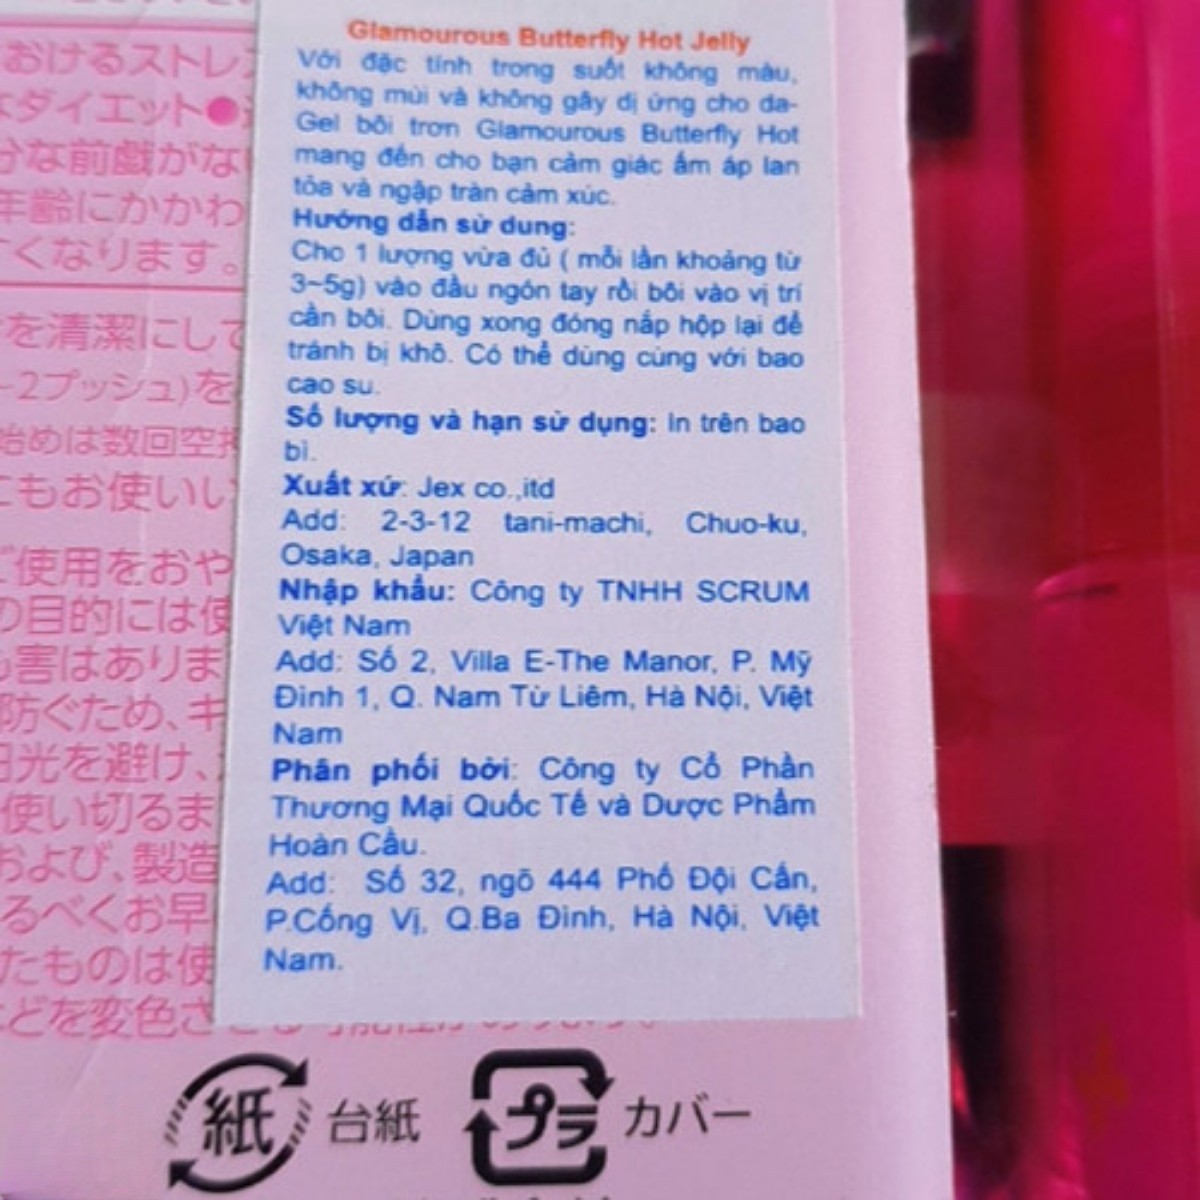 Glamourous Butterfly Hot Jelly
Với đặc tính trong suốt không màu,
không mùi và không gây dị ứng cho da-
Gel bôi trơn Glamourous Butterfly Hot
mang đến cho bạn cảm giác ấm áp lan
tỏa và ngập tràn cảm xúc.
Hướng dẫn sử dung:
Cho 1 lượng vừa đủ ( mỗi lần khoảng từ
3~5g) vào đầu ngón tay rồi bôi vào vị trí
cần bôi. Dùng xong đóng nắp hộp lại để
tránh bị khô. Có thể dùng cùng với bao
cao su.
Số lượng và hạn sử dụng: In trên bao
bì.
Xuất xứ: Jex co.,itd
Add: 2-3-12 tani-machi, Chuo-ku,
Osaka, Japan
Nhập khẩu: Công ty TNHH SCRUM
Việt Nam
Add: Số 2, Villa E-The Manor, P. Mỹ
Đình 1, Q. Nam Từ Liêm, Hà Nội, Việt
Nam
Phân phối bởi: Công ty Cổ Phần
Thương Mại Quốc Tế và Dược Phẩm
Hoàn Cầu.
Add: Số 32, ngõ 444 Phố Đội Cấn,
P.Cống Vị, Q.Ba Đình, Hà Nội, Việt
Nam.
おけるストレ
なダイエット●
分な前戯がな
年齢にかかわ
くなります。
を清潔にして
2プッシュ)を
始めは数回空
にもお使いい
ご使用をおや
の目的には使
害はありま
防ぐため、キ
日光を避け、
使い切るま
および、製造
るべくお早
たものは使
どを変色さ
紙 台紙 プラ カバー